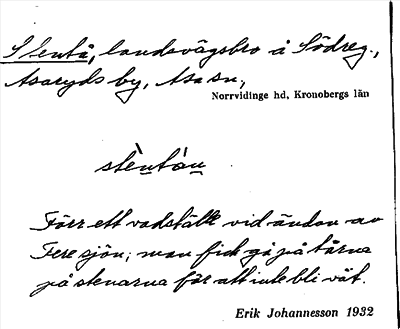 Stentå, landsvägsbro å Södreg.,
Asaryds by, Asa sn,
Norrvidinge hd, Kronobergs län
stèntán
Förr ett vadställe vid ändan av
Fere sjön; man fick gå på tårna
på stenarna för att inte bli våt.
Erik Johannesson 1932